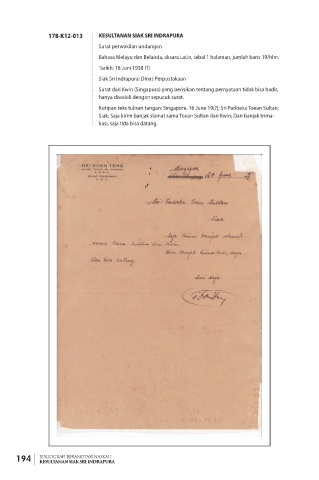 178-K12-013
KESULTANAN SIAK SRI INDRAPURA
Surat perwakilan undangan
Bahasa Melayu dan Belanda, aksara Latin, tebal 1 halaman, jumlah baris 19/hlm.
Tarikh: 16 Juni 1938 (?)
Siak Sri Indrapura: Dinas Perpustakaan
Surat dari Kwin (Singapura) yang berisikan tentang pernyataan tidak bisa hadir,
hanya diwakili dengan sepucuk surat.
Kutipan teks tulisan tangan: Singapore, 16 June 19(?); Sri Padoeka Toean Sultan;
Siak; Saja kirim banjak slamat sama Toean Sultan dari Kwin; Dan banjak trima-
kasi, saja tida bisa datang.
OEI BOEN TENG
Singapore
16 June
Sri Padoeka Toean Sultan
Siak
Saja kirim banjak slamat
sama Toean Sultan dari Kwin.
Dan banjak trima kasi, saja
tida bisa datang.
Dari saja
194
BIBLIOGRAFI BERANOTASI NASKAH
KESULTANAN SIAK SRI INDRAPURA